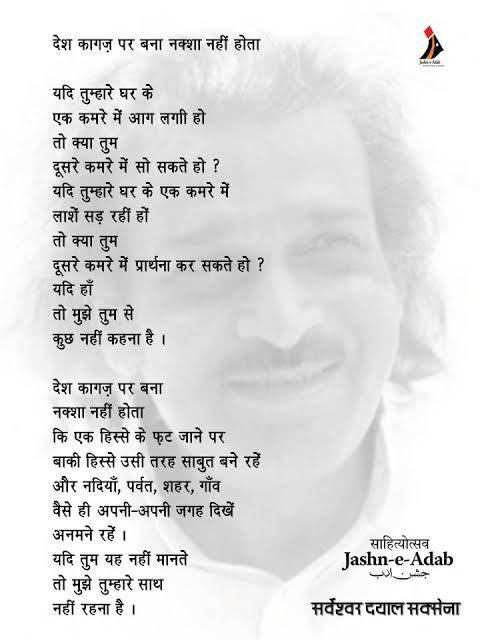 देश कागज़ पर बना नक्शा नहीं होता
Jashn-e-Adab
यदि तुम्हारे घर के
एक कमरे में आग लगी हो
तो क्या तुम
दूसरे कमरे में सो सकते हो ?
यदि तुम्हारे घर के एक कमरे में
लाशें सड़ रहीं हों
तो क्या तुम
दूसरे कमरे में प्रार्थना कर सकते हो ?
यदि हाँ
तो मुझे तुम से
कुछ नहीं कहना है ।
देश कागज़ पर बना
नक्शा नहीं होता
कि एक हिस्से के फट जाने पर
बाकी हिस्से उसी तरह साबुत बने रहें
और नदियाँ, पर्वत, शहर, गाँव
वैसे ही अपनी-अपनी जगह दिखें
अनमने रहें ।
यदि तुम यह नहीं मानते
तो मुझे तुम्हारे साथ
नहीं रहना है ।
साहित्योत्सव
Jashn-e-Adab
جشن ادب
सर्वेश्वर दयाल सक्सेना